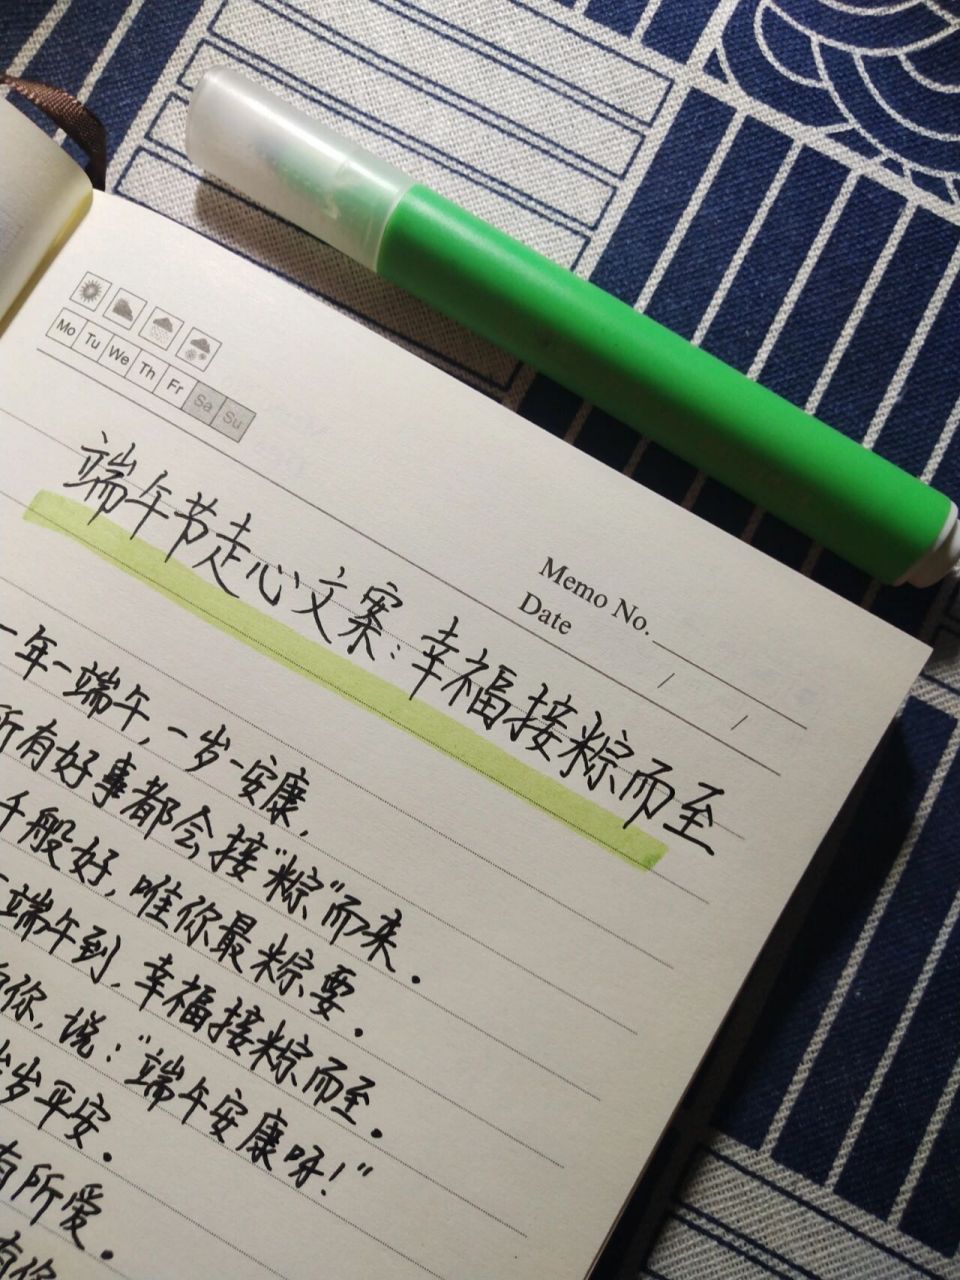 Mo Tu We Th Fr Sa Su
Memo No.
Date / /
端午节走心文案:幸福接粽而至
一年一端午,一岁一安康,
所有好事都会接“粽”而来.
千般好,唯你最粽要.
端午到,幸福接粽而至.
你,说:“端午安康呀!”
岁岁平安.
有所爱.
有你